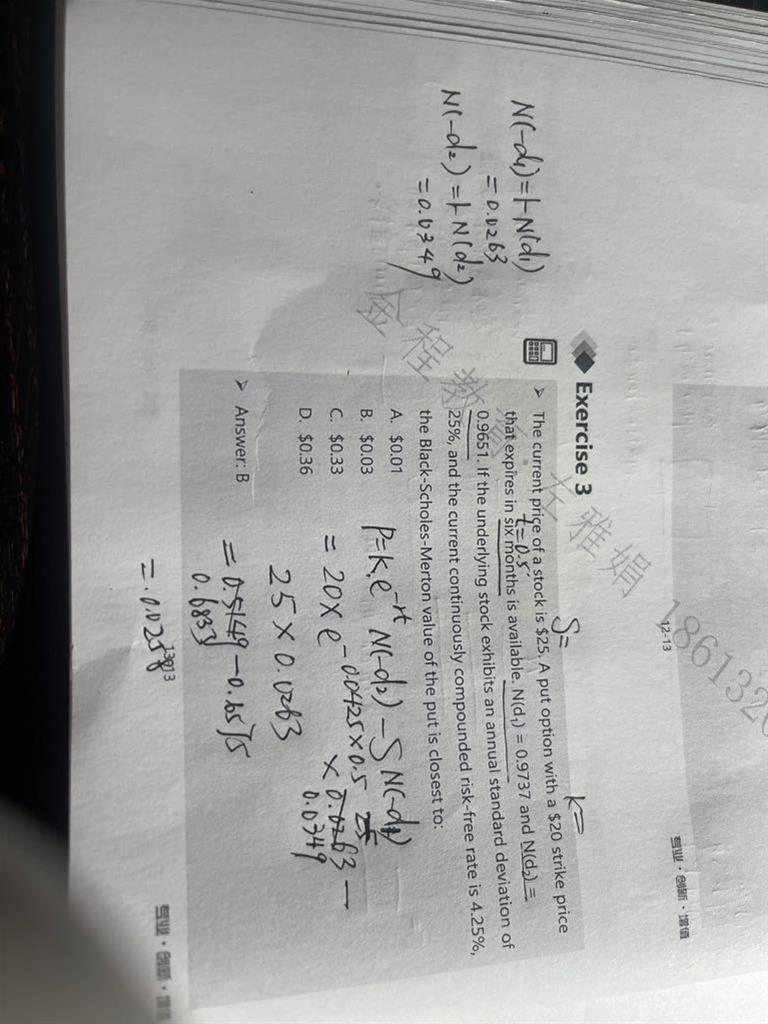 12-13
专业·创新·增值
Exercise 3
➢ The current price of a stock is $25. A put option with a $20 strike price
that expires in six months is available. N(d₁) = 0.9737 and N(d₂) =
0.9651. If the underlying stock exhibits an annual standard deviation of
25%, and the current continuously compounded risk-free rate is 4.25%,
the Black-Scholes-Merton value of the put is closest to:
A. $0.01
B. $0.03
C. $0.33
D. $0.36
➢ Answer: B
13-13
专业·创新·增值
S=
K=
t=0.5
N(-d₁)=1-N(d₁)
=0.0263
N(-d₂)=1-N(d₂)
=0.0349
P=K·e^-rt N(-d₂) - S N(-d₁)
= 20×e^-0.0425×0.5 × 0.0349 -
25×0.0263
= 0.6833 - 0.6575
= 0.0258
金程教育·左雅娟 1861326